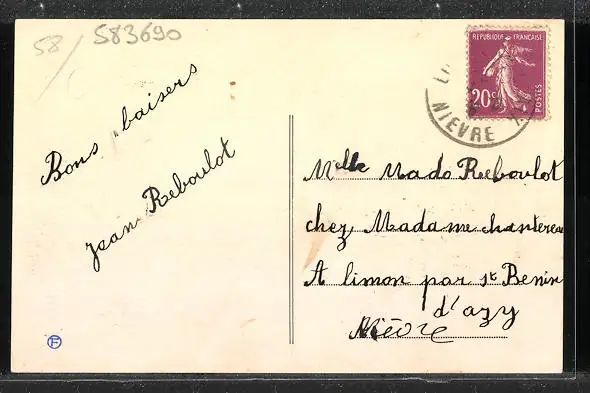 58/
583690
Bons baisers
Jean Reboulot
REPUBLIQUE FRANÇAISE
20c
POSTES
NIEVRE
Melle Mado Reboulot
chez Madame chantereau
A limon par st Benin
d'azy
Nièvre
F